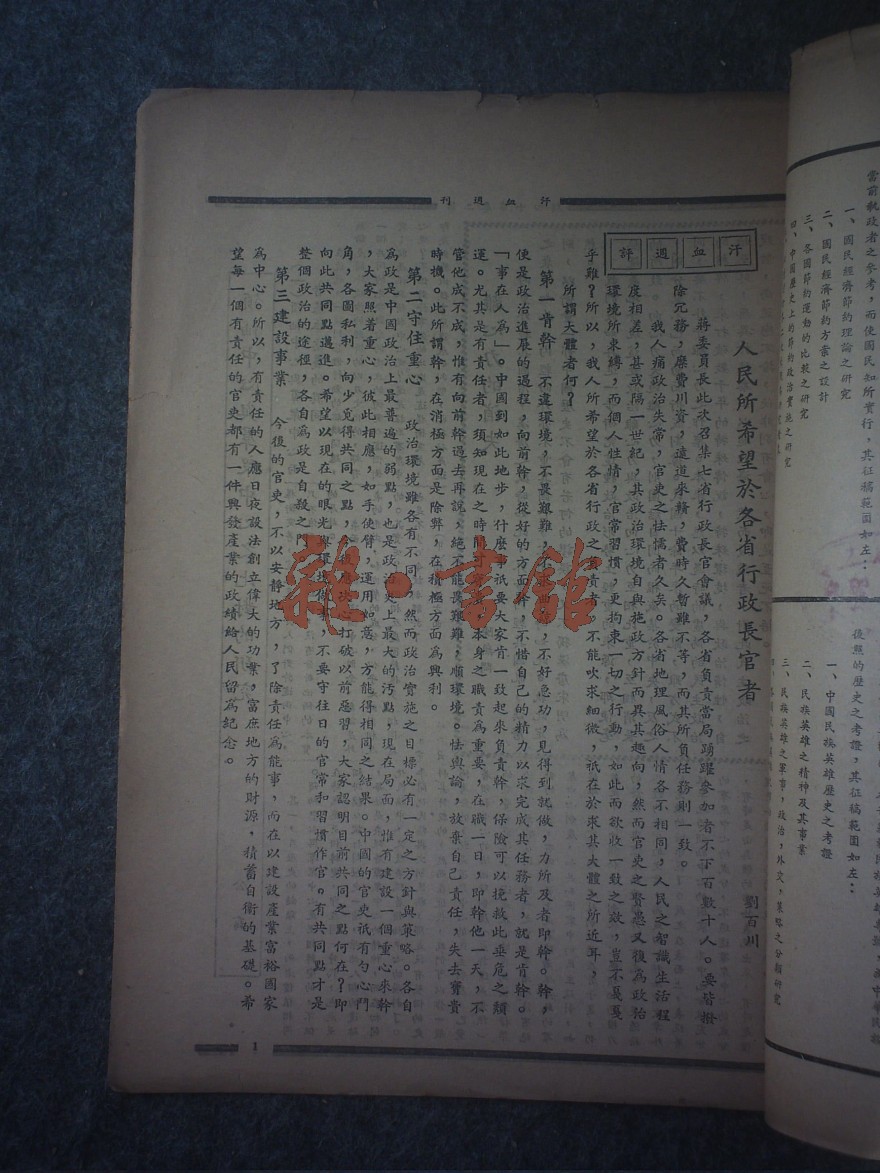 汗血週刊
汗血週評
人民所希望於各省行政長官者
劉百川
蔣委員長此次召集七省行政長官會議，各省負責當局踴躍參加者不下百數十人。要皆撥
除冗務，糜費川資，遠道來贛，費時久暫雖不等，而其所負任務則一致。
我人痛政治失常，官吏之怯懦者久矣。各省地理風俗人情各不相同，人民之智識生活程
度相差，甚或隔一世紀，其政治環境自與施政方針而異其趣向，然而官吏之賢愚又復為政治
環境所束縛，而個人性情，官常習慣，更拘束一切之行動，如此而欲收一致之效，豈不戛戛
乎難？所以，我人所希望於各省行政之責者，不能吹求細微，祇在於求其大體之所近耳，
所謂大體者何？
第一肯幹　不違環境，不畏艱難，不求，不好急功，見得到就做，力所及者即幹。幹，
便是政治進展的過程，向前幹，從好的方面幹，不惜自己的精力以求完成其任務者，就是肯幹。
「事在人為」。中國到如此地步，什麼祇要大家肯一致起來負責幹，保險可以挽救此垂危之頹
運。尤其是有責任者，須知現在之時間本身之職責為重要，在職一日，即幹他一天，不
管他成不成，惟有向前幹過去再說，絕不能畏艱難，順環境。怯輿論，放棄自己責任，失去寶貴
時機。此所謂幹，在消極方面是除弊，在積極方面為興利。
第二守住重心　政治環境雖各有不同，然而政治實施之目標必有一定之方針與策略。各自
為政是中國政治上最普遍的弱點，也是政治史上最大的污點，現在局面，惟有建設一個重心來幹
，大家照着重心，彼此相應，如手使臂，運用如意，方能得相同之結果。中國的官吏祇有勾心鬥
角，各圖私利，向少覓得共同之點，打破以前惡習，大家認明目前共同之點何在？即
向此共同點邁進。希望以現在的眼光與環境做事，不要守往日的官常和習慣作官。有共同點才是
整個政治的途徑，各自為政是自殺之門。
第三建設事業　今後的官吏，不以安靜地方，了除責任為能事，而在以建設產業富裕國家
為中心。所以，有責任的人應日夜設法創立偉大的功業，富庶地方的財源，積蓄自衛的基礎。希
望每一個有責任的官吏都有一件興發產業的政績給人民留為紀念。
1
雜·書館
當前執政者之參考，而使國民知所實行，其征稿範圍如左：
一、國民經濟節約理論之研究
二、國民經濟節約方案之設計
三、各國節約運動的比較之研究
四、中國歷史上的節約政治實施之研究
優照的歷史之考證，其征稿範圍如左：
一、中國民族英雄歷史之考證
二、民族英雄之精神及其事業
三、民族英雄之軍事，政治，外交，策略之分類研究